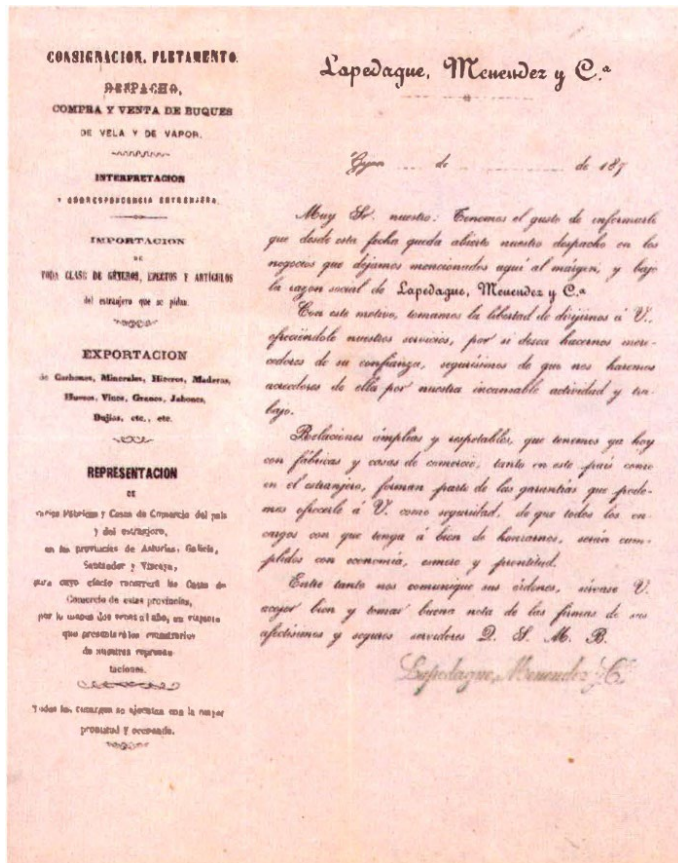 CONSIGNACION, FLETAMENTO.
DESPACHO,
COMPRA Y VENTA DE BUQUES
DE VELA Y DE VAPOR.
INTERPRETACION
Y CORRESPONDENCIA ESTRANJERA.
IMPORTACION
DE
TODA CLASE DE GÉNEROS, EFECTOS Y ARTÍCULOS
del estranjero que se pidan.
EXPORTACION
de Carbones, Minerales, Hierros, Maderas,
Huesos, Vinos, Granos, Jabones,
Bujías, etc., etc.
REPRESENTACION
DE
varias Fábricas y Casas de Comercio del país
y del estranjero,
en las provincias de Asturias, Galicia,
Santander y Vizcaya,
para cuyo efecto recorrerá las Casas de
Comercio de estas provincias,
por lo menos dos veces al año, un viajante
que presentará los muestrarios
de nuestras represen-
taciones.
Todos los encargos se ejecutan con la mayor
prontitud y economía.
Lapedague, Menendez y C.ª
Gijon de de 187
Muy Sr. nuestro: Tenemos el gusto de informarle
que desde esta fecha queda abierto nuestro despacho en los
negocios que dejamos mencionados aquí al márgen, y bajo
la razon social de Lapedague, Menendez y C.ª
Con este motivo, tomamos la libertad de dirijirnos á V.,
ofreciéndole nuestros servicios, por si desea hacernos mere-
cedores de su confianza, segurísimos de que nos haremos
acreedores de ella por nuestra incansable actividad y tra-
bajo.
Relaciones ámplias y respetables, que tenemos ya hoy
con fábricas y casas de comercio, tanto en este país como
en el estranjero, forman parte de las garantías que pode-
mos ofrecerle á V. como seguridad, de que todos los en-
cargos con que tenga á bien de honrarnos, serán cum-
plidos con economía, esmero y prontitud.
Entre tanto nos comunique sus órdenes, sírvase V.
acojer bien y tomar buena nota de las firmas de sus
afectísimos y seguros servidores Q. S. M. B.
Lapedague, Menendez y C.ª